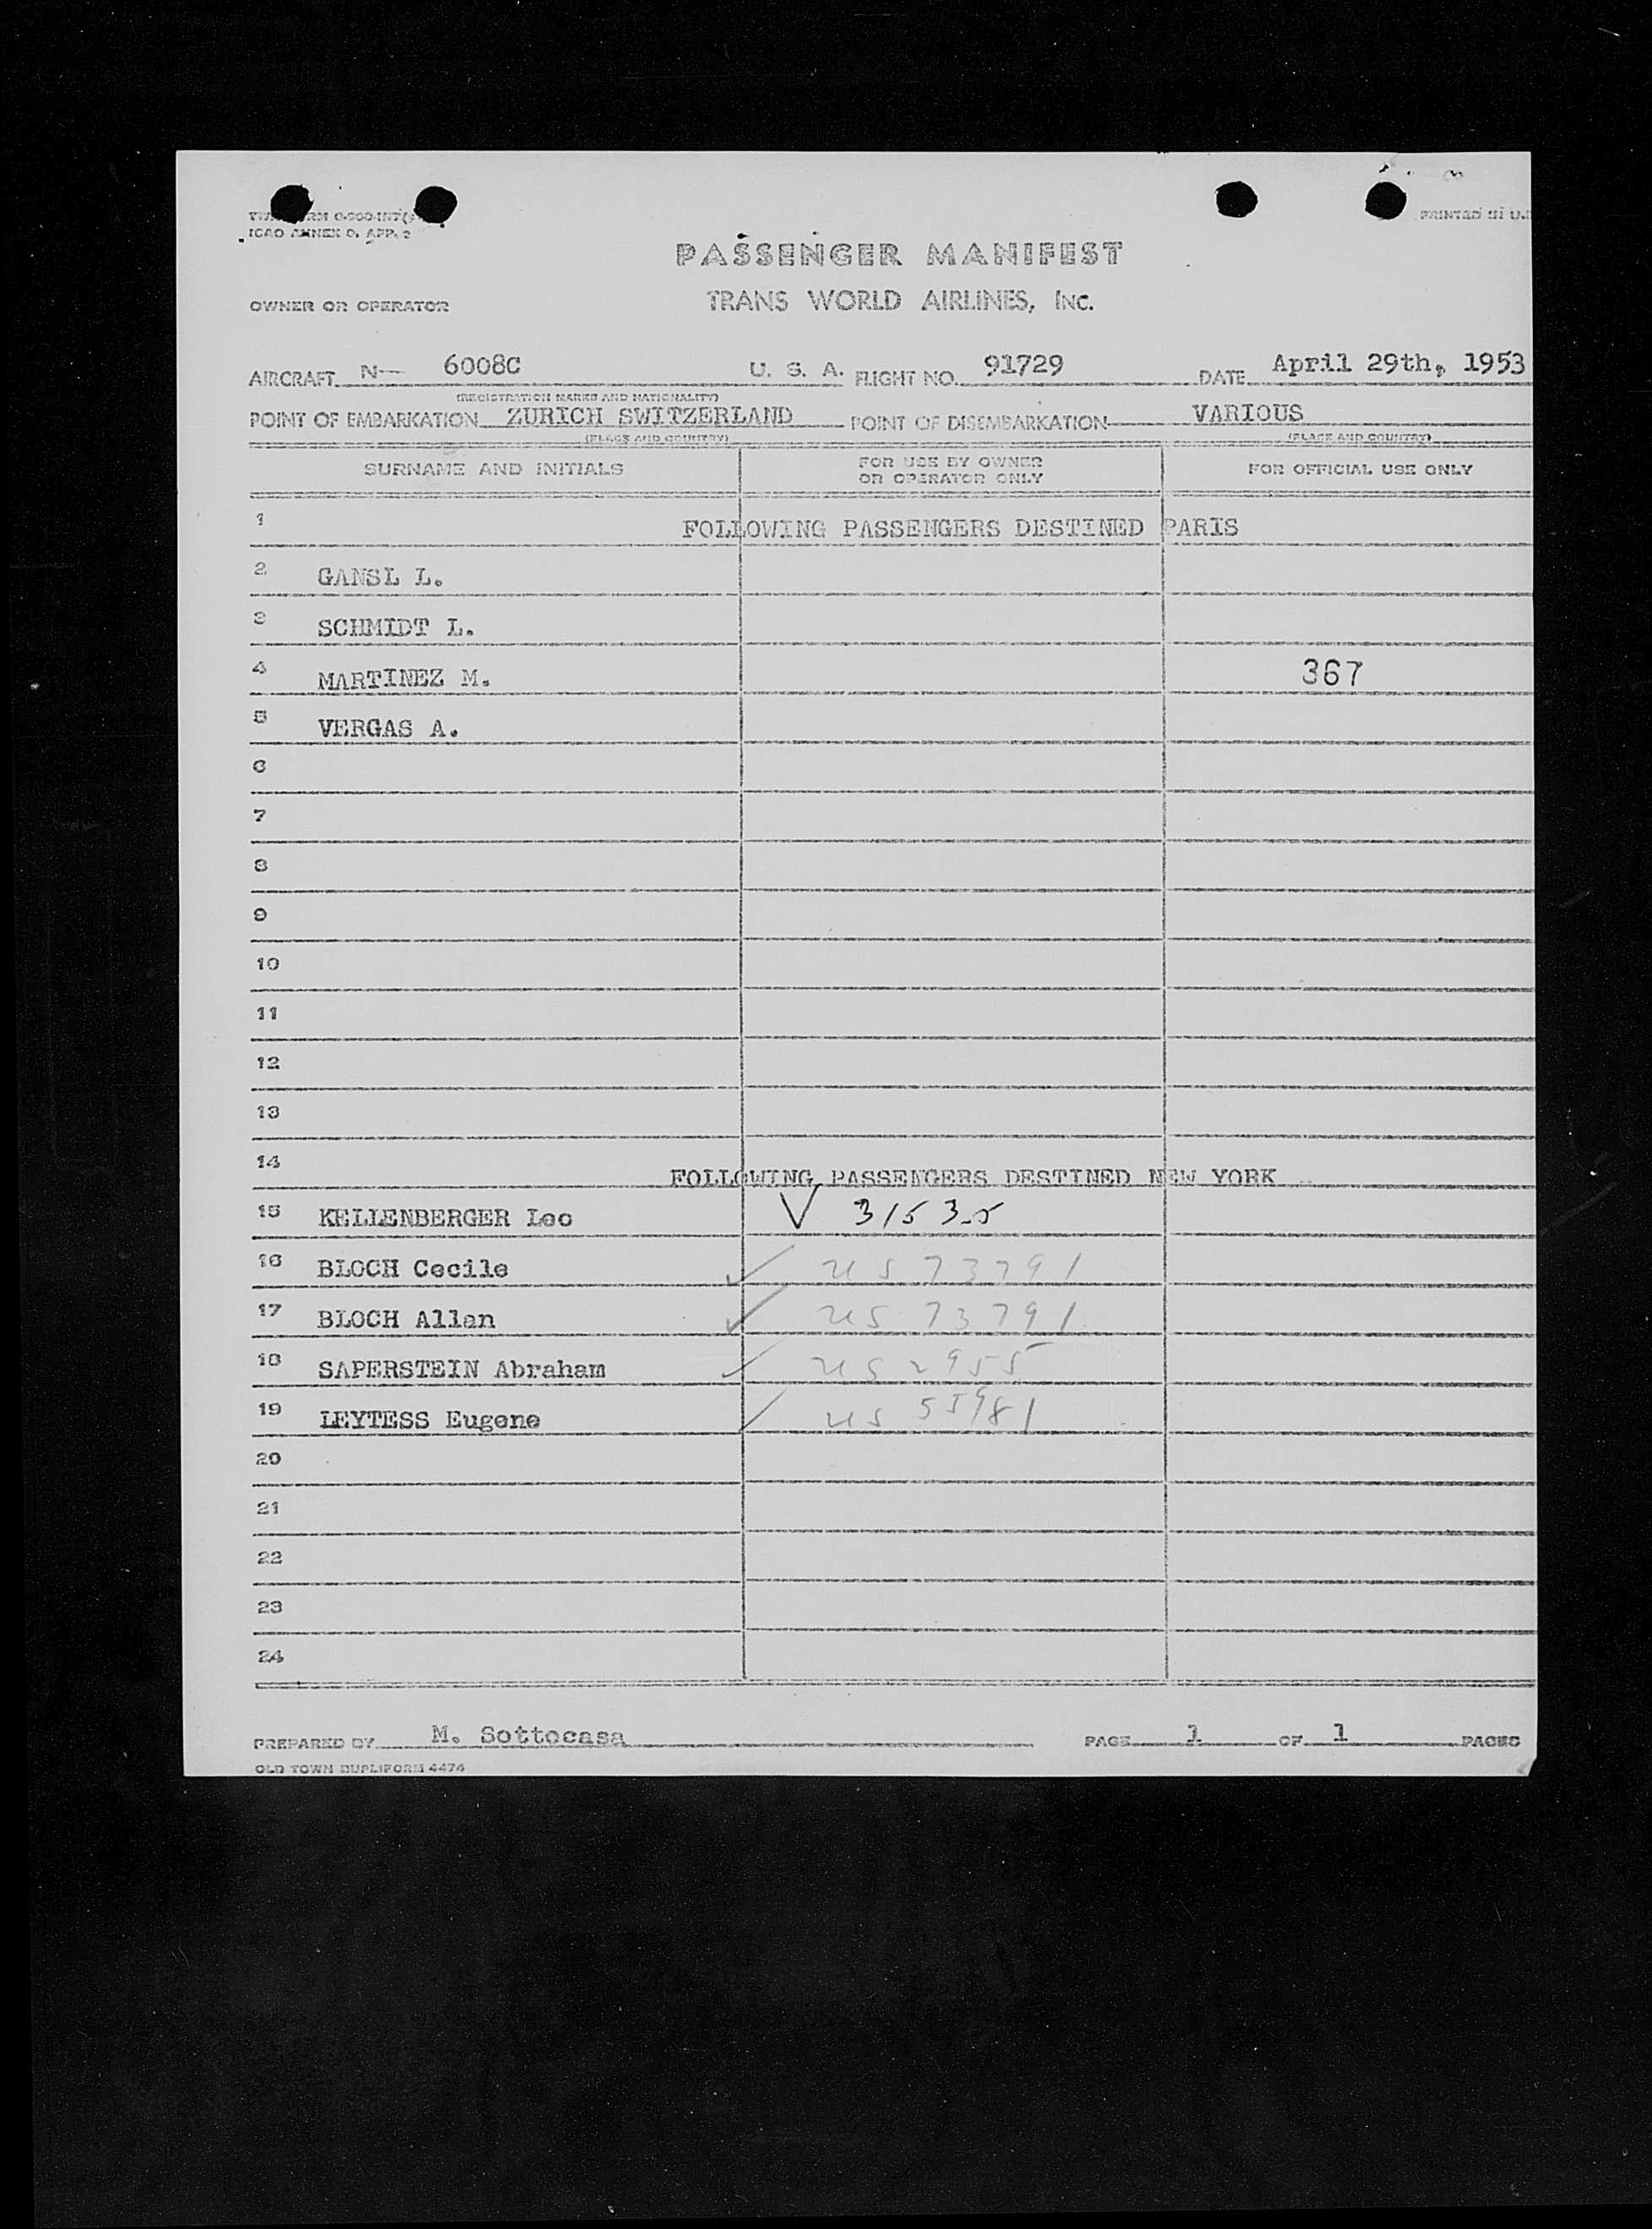 ICAO ANNEX 9, APP. 2
PRINTED IN U.S
PASSENGER MANIFEST
OWNER OR OPERATOR TRANS WORLD AIRLINES, INC.
AIRCRAFT N- 6008C U. S. A. FLIGHT NO. 91729 DATE April 29th, 1953
(REGISTRATION MARKS AND NATIONALITY)
POINT OF EMBARKATION ZURICH SWITZERLAND POINT OF DISEMBARKATION VARIOUS
(PLACE AND COUNTRY) (PLACE AND COUNTRY)
SURNAME AND INITIALS FOR USE BY OWNER OR OPERATOR ONLY FOR OFFICIAL USE ONLY
1 FOLLOWING PASSENGERS DESTINED PARIS
2 GANSL L.
3 SCHMIDT L.
4 MARTINEZ M. 367
5 VERGAS A.
6
7
8
9
10
11
12
13
14 FOLLOWING PASSENGERS DESTINED NEW YORK
15 KELLENBERGER Leo V 31535
16 BLOCH Cecile ✓ US 73791
17 BLOCH Allan ✓ US 73791
18 SAPERSTEIN Abraham ✓ US 2955
19 LEYTESS Eugene ✓ US 55981
20
21
22
23
24
PREPARED BY M. Sottocasa PAGE 1 OF 1 PAGES
OLD TOWN DUPLIFORM 4474